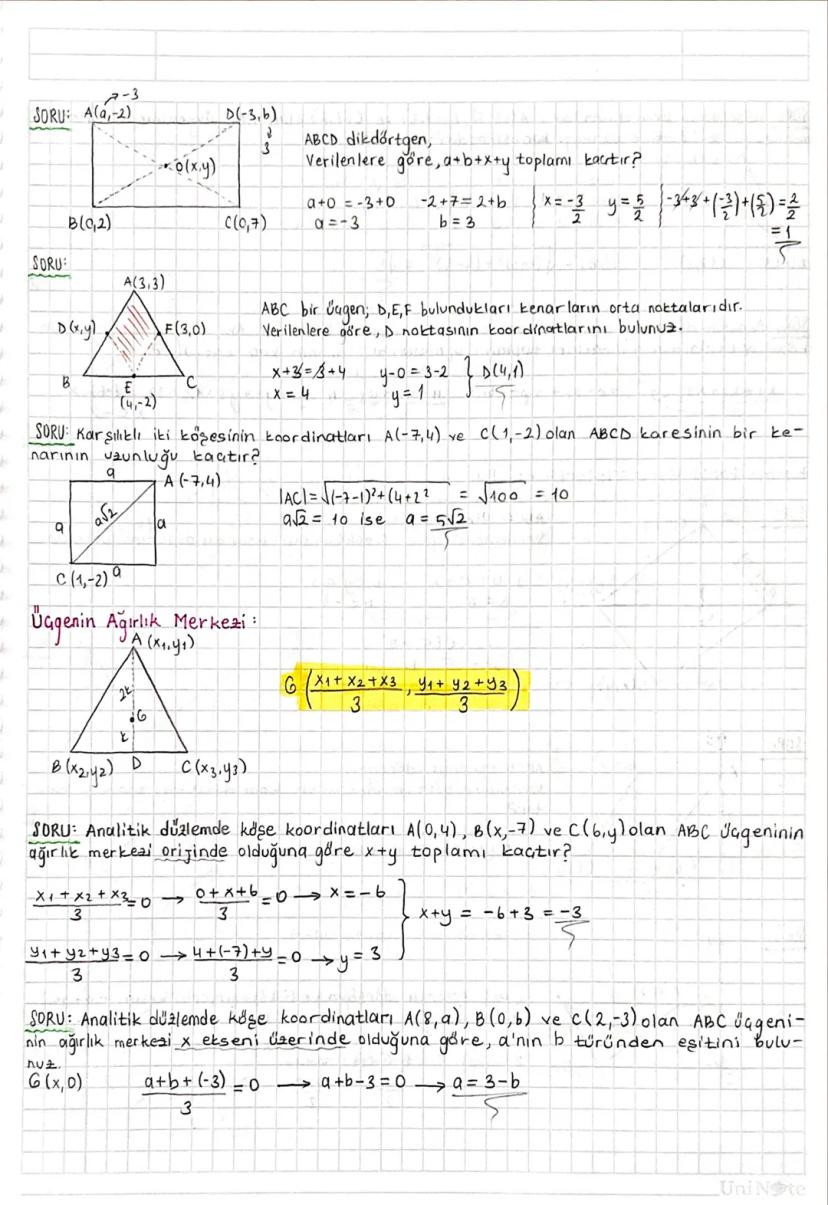 → -3
SORU: A(a,-2) D(-3,b)
3
O(x,y)
B(0,2) C(0,7)
ABCD dikdörtgen,
Verilenlere göre, a+b+x+y toplamı kaçtır?
a+0 = -3+0 -2+7=2+b } x = -3/2 y = 5/2 } -3+3+(-3/2)+(5/2) = 2/2
a = -3 b = 3 = 1
SORU:
A(3,3)
D(x,y) F(3,0)
B E C
(4,-2)
ABC bir üçgen; D,E,F bulundukları kenarların orta noktalarıdır.
Verilenlere göre, D noktasının koordinatlarını bulunuz.
x+3=3+4 y-0 = 3-2 } D(4,1)
x = 4 y = 1
SORU: Karşılıklı iki köşesinin koordinatları A(-7,4) ve C(1,-2) olan ABCD karesinin bir ke-
narının uzunluğu kaçtır?
a A(-7,4)
a a√2 a
C(1,-2) a
|AC|= √(-7-1)²+(4+2² = √100 = 10
a√2 = 10 ise a = 5√2
Üçgenin Ağırlık Merkezi:
A (x₁,y₁)
2k
G
k
B(x₂,y₂) D C(x₃,y₃)
G (x₁+x₂+x₃/3 , y₁+y₂+y₃/3)
SORU: Analitik düzlemde köşe koordinatları A(0,4), B(x,-7) ve C(6,y) olan ABC üçgeninin
ağırlık merkezi orijinde olduğuna göre x+y toplamı kaçtır?
x₁+x₂+x₃/3 = 0 → 0+x+6/3 = 0 → x = -6
x+y = -6+3 = -3
y₁+y₂+y₃/3 = 0 → 4+(-7)+y/3 = 0 → y = 3
SORU: Analitik düzlemde köşe koordinatları A(8,a), B(0,b) ve C(2,-3) olan ABC üçgeni-
nin ağırlık merkezi x ekseni üzerinde olduğuna göre, a'nın b türünden eşitini bulu-
nuz.
G(x,0) a+b+(-3)/3 = 0 → a+b-3=0 → a = 3-b
UniNote